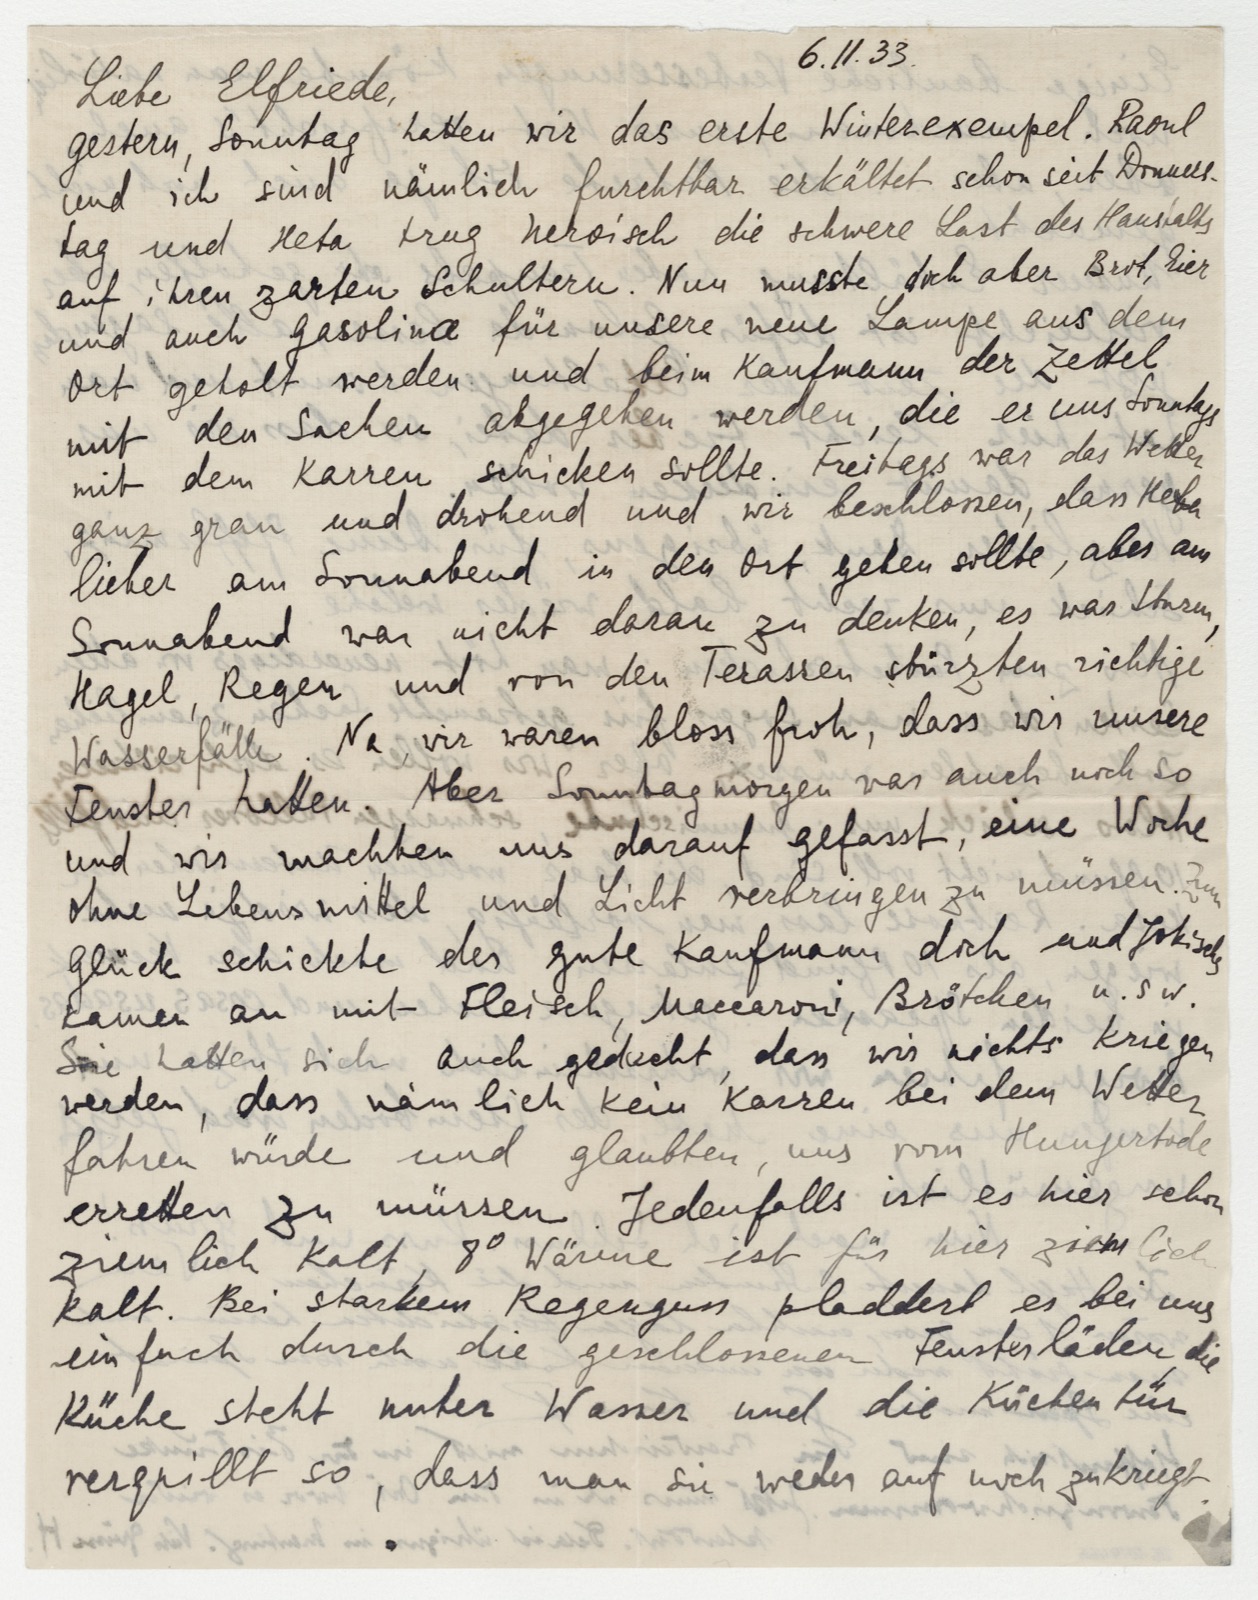 6.11.33.
Liebe Elfriede,
gestern, Sonntag hatten wir das erste Winterexempel. Raoul
und ich sind nämlich furchtbar erkältet schon seit Donners-
tag und Heta trug heroisch die schwere Last des Haushalts
auf ihren zarten Schultern. Nun musste doch aber Brot, Eier
und auch Gasolina für unsere neue Lampe aus dem
Ort geholt werden und beim Kaufmann der Zettel
mit den Sachen abgegeben werden, die er uns Sonntags
mit dem Karren schicken sollte. Freitags war das Wetter
ganz grau und drohend und wir beschlossen, dass Heta
lieber am Sonnabend in den Ort gehen sollte, aber am
Sonnabend war nicht daran zu denken, es war Sturm,
Hagel, Regen und von den Terassen stürzten richtige
Wasserfälle. Na, wir waren bloss froh, dass wir unsere
Fenster hatten. Aber Sonntagmorgen war auch noch so
und wir machten uns darauf gefasst, eine Woche
ohne Lebensmittel und Licht verbringen zu müssen. Zum
Glück schickte der gute Kaufmann doch und Jokischs
kamen an mit Fleisch, Maccaroni, Brötchen u.s w.
Sie hatten sich auch gedacht, dass wir nichts kriegen
werden, dass nämlich kein Karren bei dem Wetter
fahren würde und glaubten, uns vom Hungertode
erretten zu müssen. Jedenfalls ist es hier schon
ziemlich kalt, 8° Wärme ist für hier ziemlich
kalt. Bei starkem Regenguss pladdert es bei uns
einfach durch die geschlossenen Fensterläden, die
Küche steht unter Wasser und die Küchentür
verquillt so, dass man sie weder auf noch zukriegt.